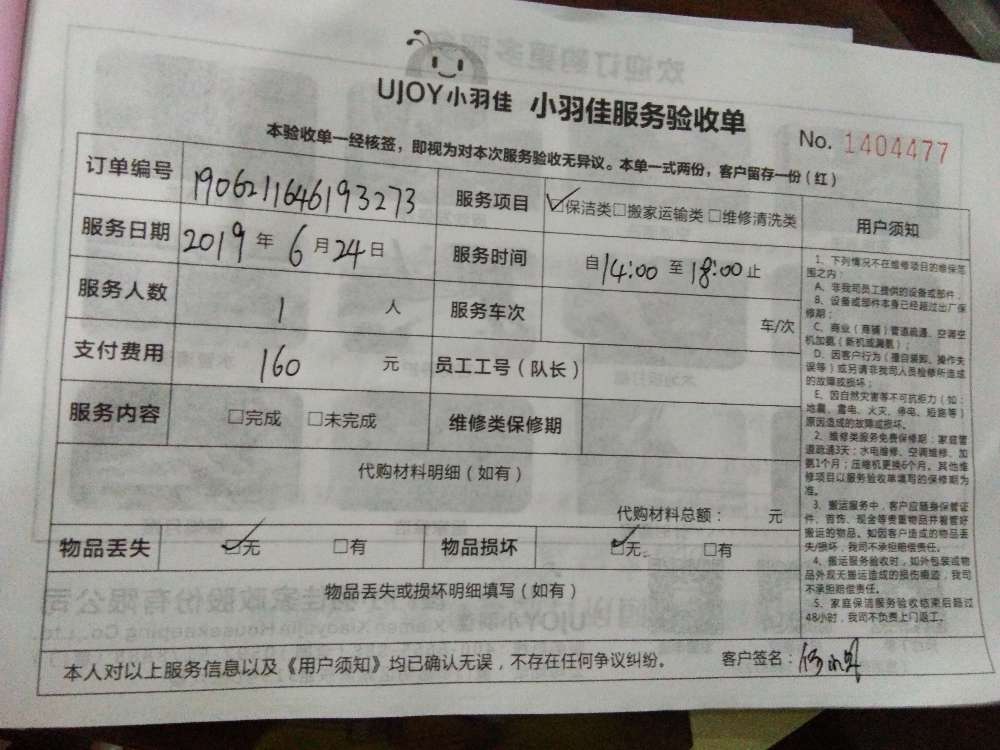 UJOY小羽佳 小羽佳服务验收单
No. 1404477
本验收单一经核签，即视为对本次服务验收无异议。本单一式两份，客户留存一份（红）
订单编号 1906211646193273 服务项目 ☑保洁类□搬家运输类 □维修清洗类
服务日期 2019 年 6 月 24 日 服务时间 自 14:00 至 18:00 止
服务人数 1 人 服务车次 车/次
支付费用 160 元 员工工号（队长）
服务内容 □完成 □未完成 维修类保修期
代购材料明细（如有）
代购材料总额： 元
物品丢失 ☑无 □有 物品损坏 ☑无 □有
物品丢失或损坏明细填写（如有）
本人对以上服务信息以及《用户须知》均已确认无误，不存在任何争议纠纷。 客户签名：
用户须知
1、下列情况不在维修项目的维保范
围之内：
A、非我司员工提供的设备或部件；
B、设备或部件本身已经超过出厂保
修期；
C、商业（商铺）管道疏通、空调空
机加氨（新机或漏氨）；
D、因客户行为（擅自装卸、操作失
误等）或另请非我司人员检修所造成
的故障或损坏；
E、因自然灾害等不可抗拒力（如：
地震、雷电、火灾、停电、短路等）
原因造成的故障或损坏。
2、维修类服务免费保修期：家庭管
道疏通3天；水电维修、空调维修、加
氨1个月；压缩机更换6个月。其他维
修项目以服务验收单填写的保修期为
准。
3、搬运服务中，客户应随身保管证
件、首饰、现金等贵重物品并看管好
搬运的物品。如因客户造成的物品丢
失/损坏，我司不承担赔偿责任。
4、搬运服务验收时，如外包装或物
品外观无搬运造成的损伤痕迹，我司
不承担赔偿责任。
5、家庭保洁服务验收结束后超过
48小时，我司不负责上门返工。